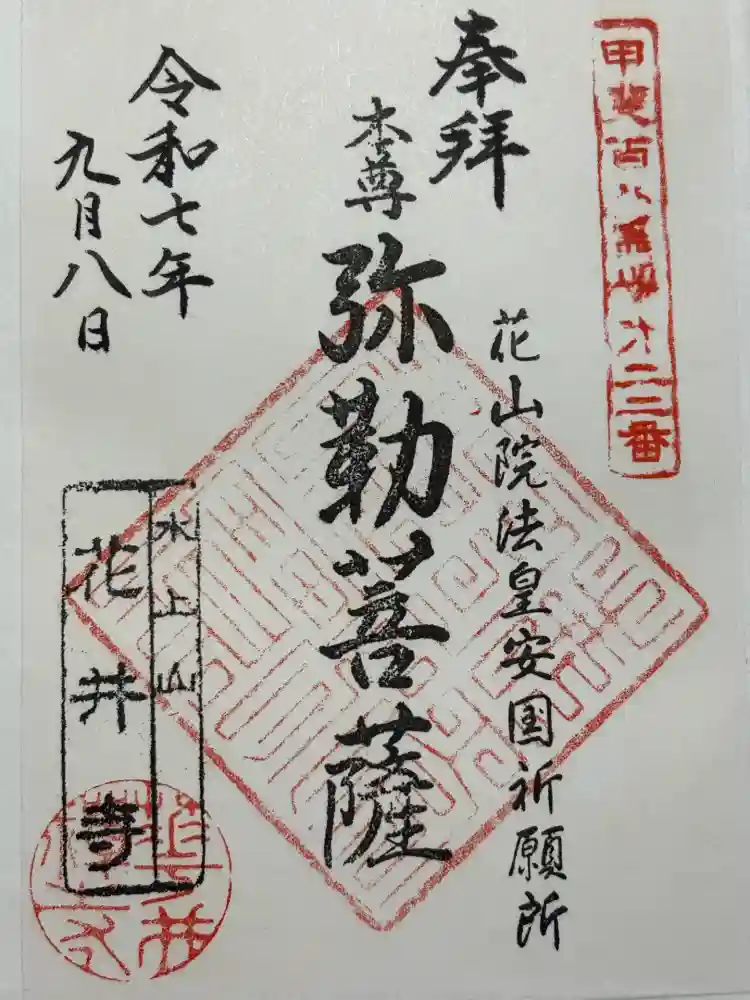 甲斐百八霊場第二三番
奉拝
花山院法皇安国祈願所
本尊
弥勒菩薩
令和七年
九月八日
水上山
花井寺